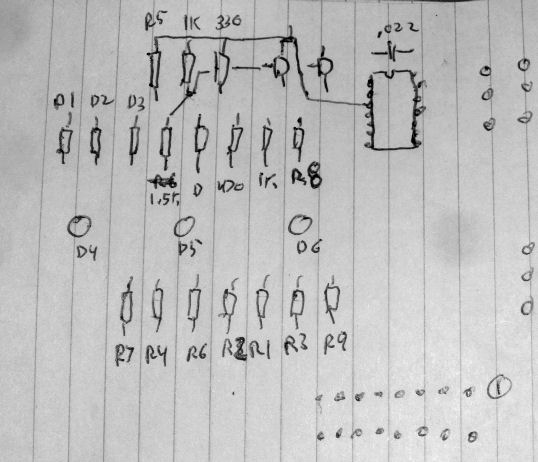 R5 1K 330 .022
D1 D2 D3
1.5K D 470 1K R8
D4 D5 D6
R7 R4 R6 R2 R1 R3 R9
1